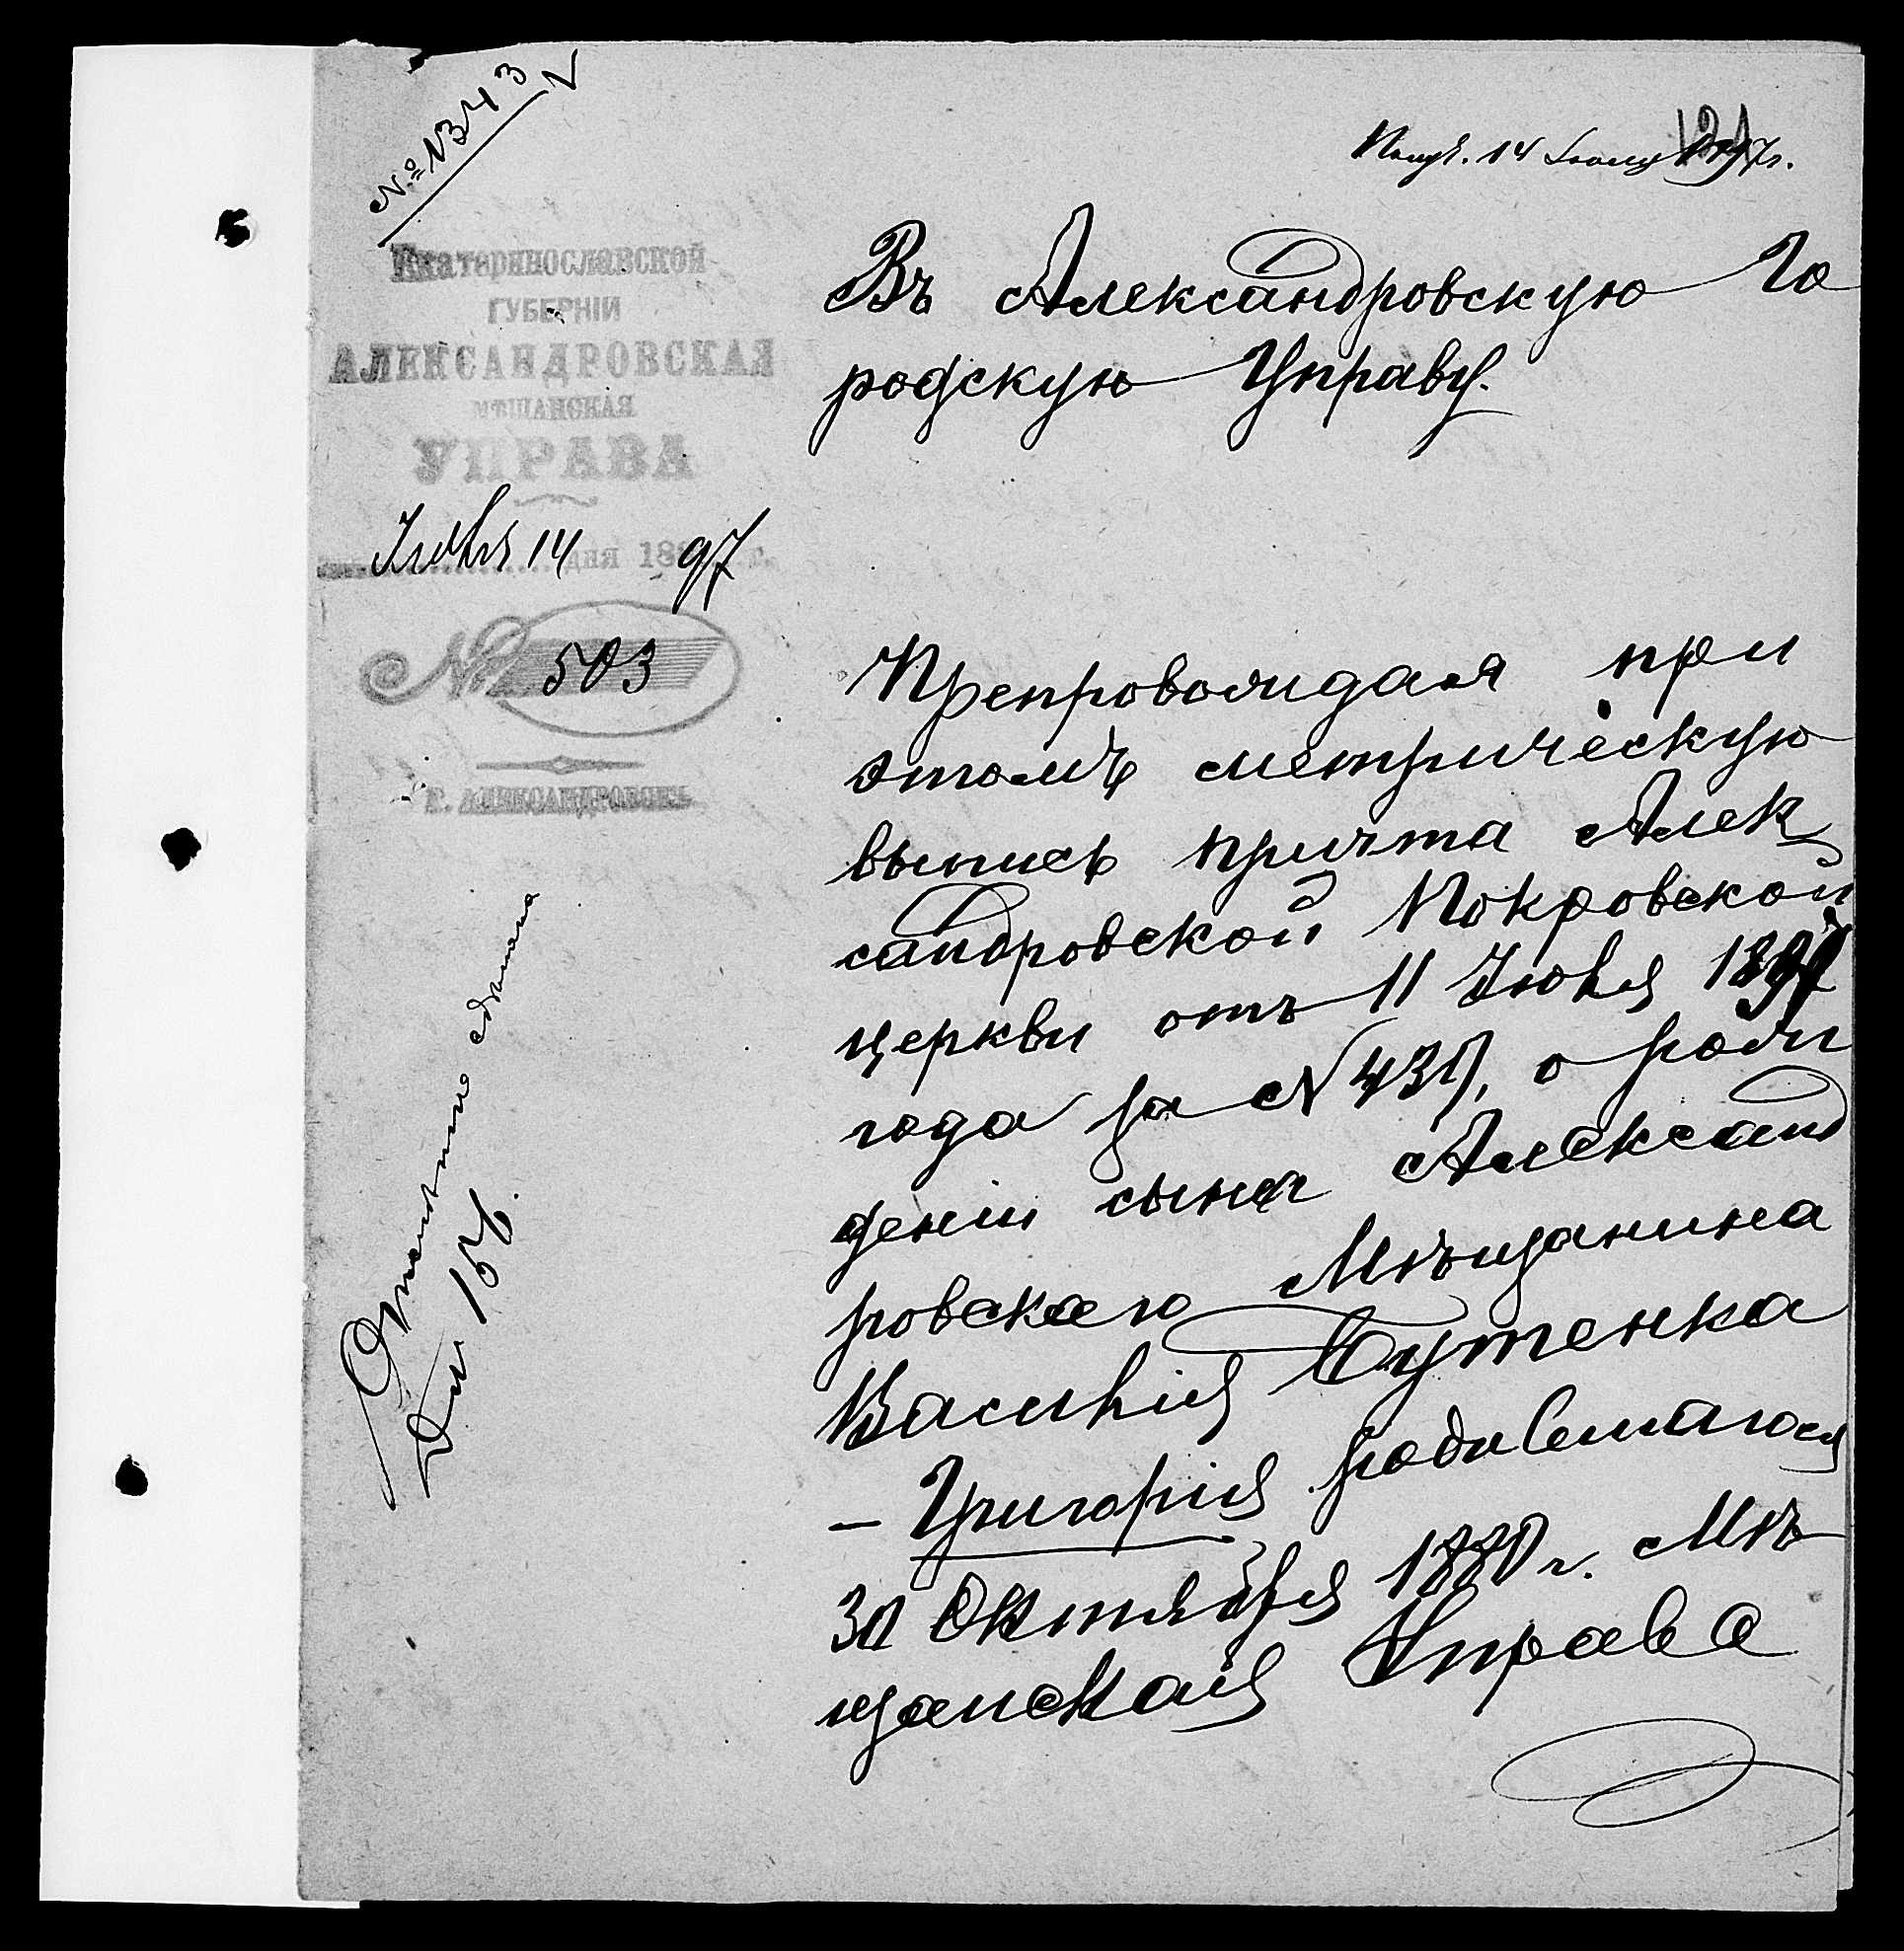 № 1343
121
Получ. 14 Іюня 1897 г.
Екатеринославской
ГУБЕРНІИ
АЛЕКСАНДРОВСКАЯ
МѢЩАНСКАЯ
УПРАВА
Іюня 14 дня 1897 г.
№ 503
Г. АЛЕКСАНДРОВСКЪ
Въ Александровскую Го
родскую Управу.
Препровождая при
этомъ метрическую
выпись причта Алек
сандровской Покровской
церкви отъ 11 Іюня 1897
года за № 430, о рож
деніи сына Александ
ровскаго Мѣщанина
Василія Бутенка
— Григорія родившагося
30 Октября 1880 г. Мѣ
щанская Управа
Отмѣтка сдѣлана